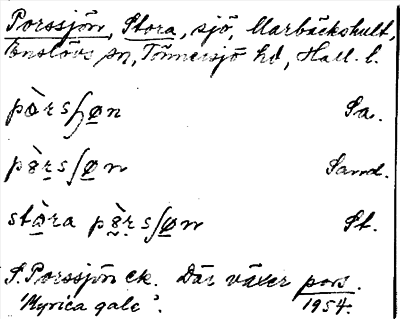 Porssjön, Stora, sjö, Marbäckshult,
Enslövs sn, Tönnersjö hd, Hall. l.
pòrsʃøn Sa.
pò̤rsʃøn Sand.
stò̤ra pò̤rsʃøn St.
S. Porssjön ek. Där växer pors.
'Myrica gale'. 1954.